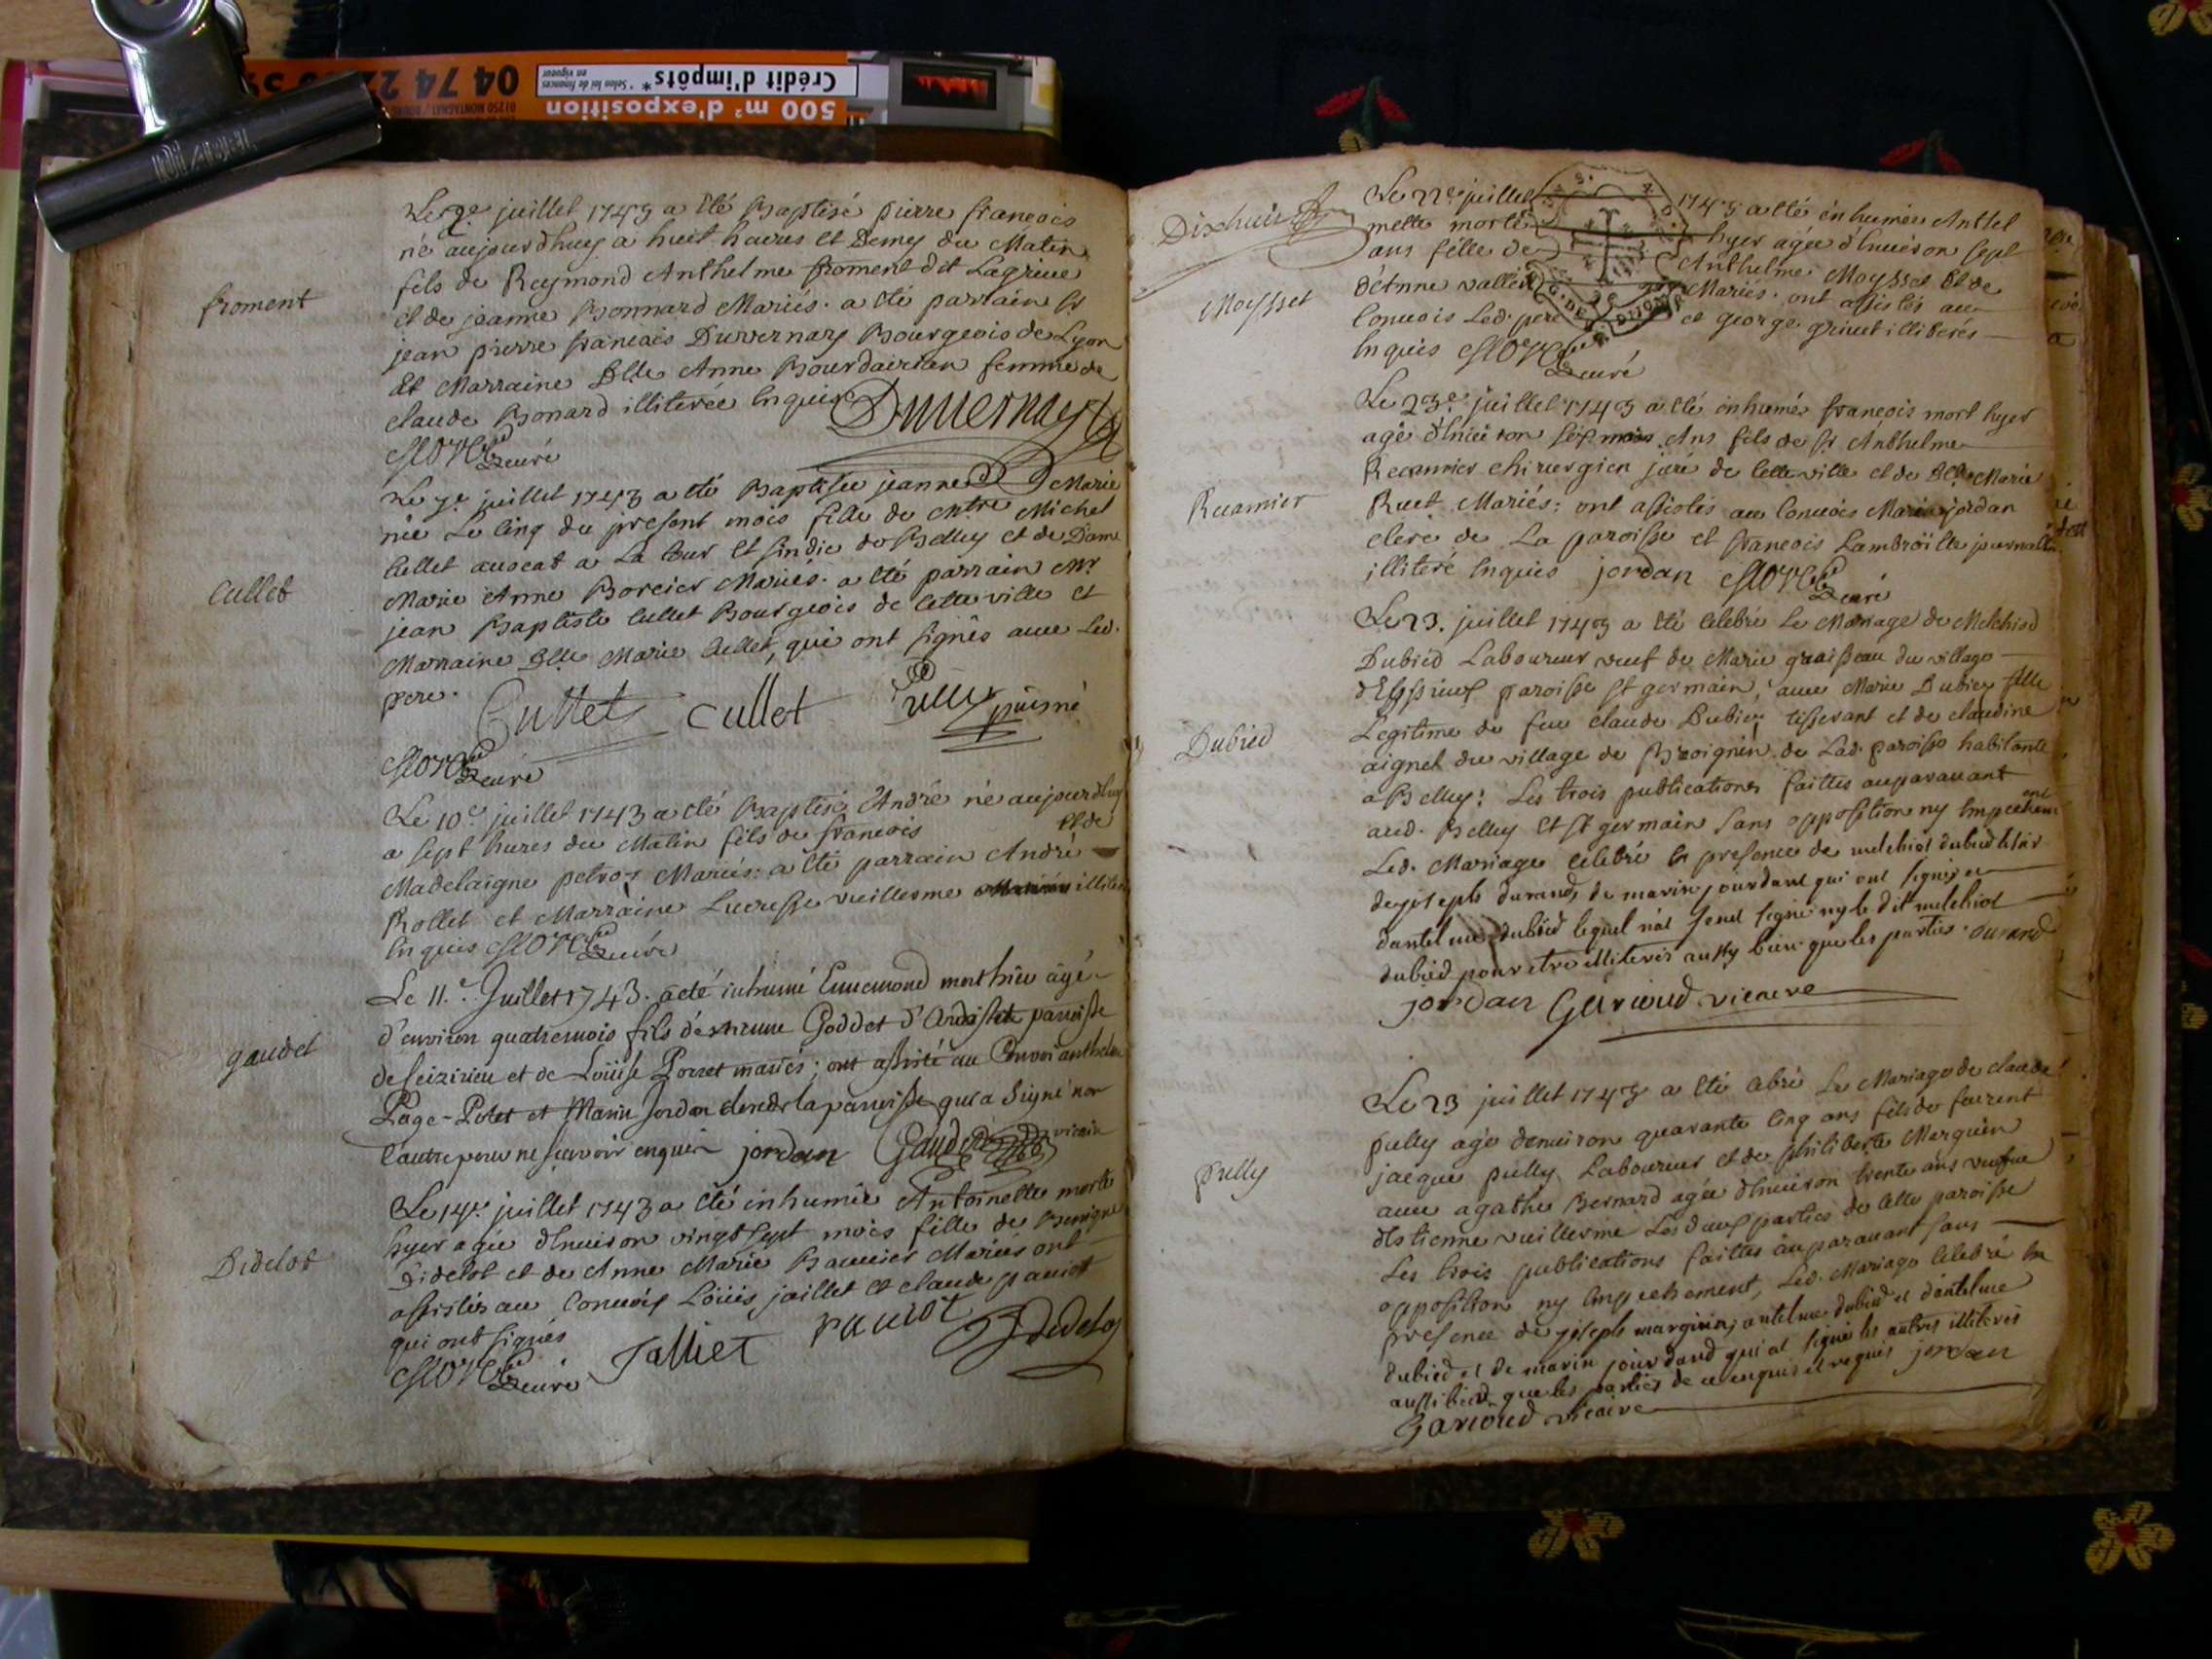 500 m² d'exposition
Crédit d'impôts*
* Selon loi de finances
en vigueur
04 74 2
froment
Le 7e juillet 1743 a été Baptisé pierre francois
né aujourdhuy a huit heures et Demy du Matin
fils de Reymond Anthelme froment dit Lagrive
et de jeanne Bonnard Mariés. a été parrain Sr
jean pierre francois Duvernay Bourgeois de Lyon
Et Marraine Dlle Anne Bourdairian femme de
claude Bonard illiterée Enquise Duvernay
curé
Cullet
Le 7e juillet 1743 a été Baptisée jeanne Marie
née Le cinq du present mois fille de Mtre Michel
Cullet avocat a La Cour et sindic de Belley et de Dame
Marie Anne Borcier Mariés. a été parrain Mr
jean Baptiste Cullet Bourgeois de Cette ville et
Marraine Dlle Marie Cullet, qui ont signés avec Led.
pere. Cullet Cullet Cullet puisné
curé
Le 10e juillet 1743 a été Baptisé André né aujourdhuy
a sept hures du Matin fils de francois et de
Madelaigne pelroz Mariés: a été parrain André
Rollet et Marraine Lucresse vuillerme illiteres
Enquis curé
gaudet
Le 11.e Juillet 1743. a été inhumé Ennemond mort hier âgé
d'environ quatre mois fils d'estienne Goddet d'Andissiat paroisse
de Ceizirieu et de Loüise Porret mariés; ont assisté au Convoi anthelme
Page-Potet et Marin Jordan clerc de la paroisse qui a Signé non
l'autre pour ne sçavoir enquis jordan Gaudet vicair
Didelot
Le 14e juillet 1743 a été inhumée Antoinette morte
hyer agée d'Environ vingt sept mois fille de Benigne
Didelot et de Anne Marie Bannier Mariés ont
assistés au Convois Loüis jaillet et claude paniot
qui ont signés
curé Jalliet paniot Didelot
Dixhuit
Moysset
Le 22e juillet 1743 a été enhumée Anthel
mette morte hyer agée d'Environ sept
ans fille de Anthelme Moysset Et de
d'Anne vallin Mariés. ont assistés au
Convois Led. pere et george grivet illiterés
Enquis curé
Recamier
Le 23e juillet 1743 a été inhumé francois mort hyer
agé d'Environ six Ans fils de Sr Anthelme
Recamier chirurgien juré de Cette ville et de Dlle Marie
Ruet Mariés: ont assistés au Convois Marin jordan
clerc de La paroisse et francois Lambroille journallier
illiteré Enquis jordan curé
Dubied
Le 23. juillet 1743 a été Celebré Le Mariage de Melchiod
Dubied Laboureur veuf de Marie graisseau du village
d'Essieux paroisse St germain, avec Marie Dubiey fille
Legitime de feu claude Dubiey tisserant et de claudine
aignel du village de Broignin de Lad. paroisse habitante
a Belley: Les trois publications faittes auparavant
aud. Belley Et St germain sans opposition ny Empechement
Led. Mariage Celebré En presence de melchiot dubied
de joseph durand, de marin jourdant qui ont signés et
d'antelme dubied lequel n'at seul signé ny le dit melchiot
dubied pour etre illiterés aussy bien que les parties. durand
jordan Gavioud vicaire
Pully
Le 23 juillet 1743 a été Cebré Le Mariage de claude
pully agé denviron quarante Cinq ans fils de feu rent
jacque pully Laboureur et de philiberte Merguin
avec agathe Bernard agée d'Environ trente ans veufve
d'Estienne vuillerme Les deux parties de Cette paroisse
Les trois publications faittes auparavant sans
opposition ny Empechement, Led. Mariage Celebré En
presence de joseph marguin, antelme dubied et d'antelme
dubied et de marin jourdand qui at signé les autres illiterés
aussi bien que les parties de ce enquis et requis jordan
Gavioud vicaire